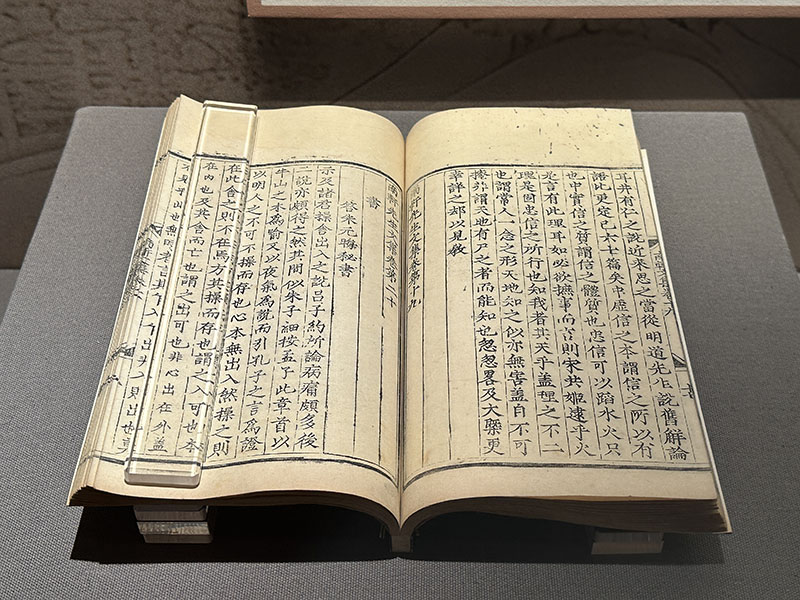 耳井有仁之說近來思之當從明道先生說舊解論
語此更定已六七篇矣中虛信之本謂信之所以有
也中實信之質謂信之體質也忠信可以蹈水火只
是言有此理耳如必欲摭事而言則宋共姬逮乎火
理是固忠信之所行也知我者其天乎蓋理之不二
也謂常人一念之形天地知之似亦無害蓋自不可
外謂天地有尸之者而能知也忽忽畧及大槩更
幸詳之却以見敎
南軒先生文集卷第十九
南軒先生文集卷第二十
書
答朱元晦秘書
示及諸君操舍出入之說呂子約所論病痛頗多後
一說亦頗得之然其間似未子細按孟子此章首以
牛山之木為喻又以夜氣為說而引孔子之言為證
以明人之不可不操而存也心本無出入然操之則
在此舍之則不在焉方其操而存也謂之入可也本
在內也及其舍而亡也謂之出可也非心出在外蓋
不見乎此也